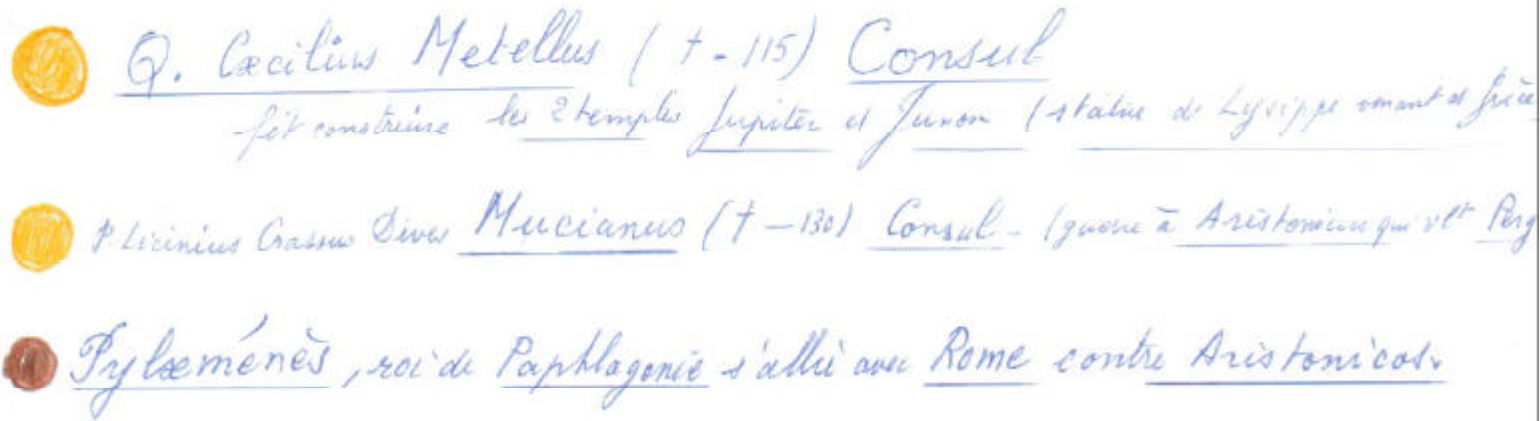 Q. Cæcilius Metellus ( † - 115) Consul
fit construire les 2 temples Jupiter et Junon (statue de Lysippe venant de Grèce
P Licinius Crassus Dives Mucianus († - 130) Consul - (guerre à Aristonicus qui vlt Perg
Pylæménès, roi de Paphlagonie s'allie avec Rome contre Aristonicos.